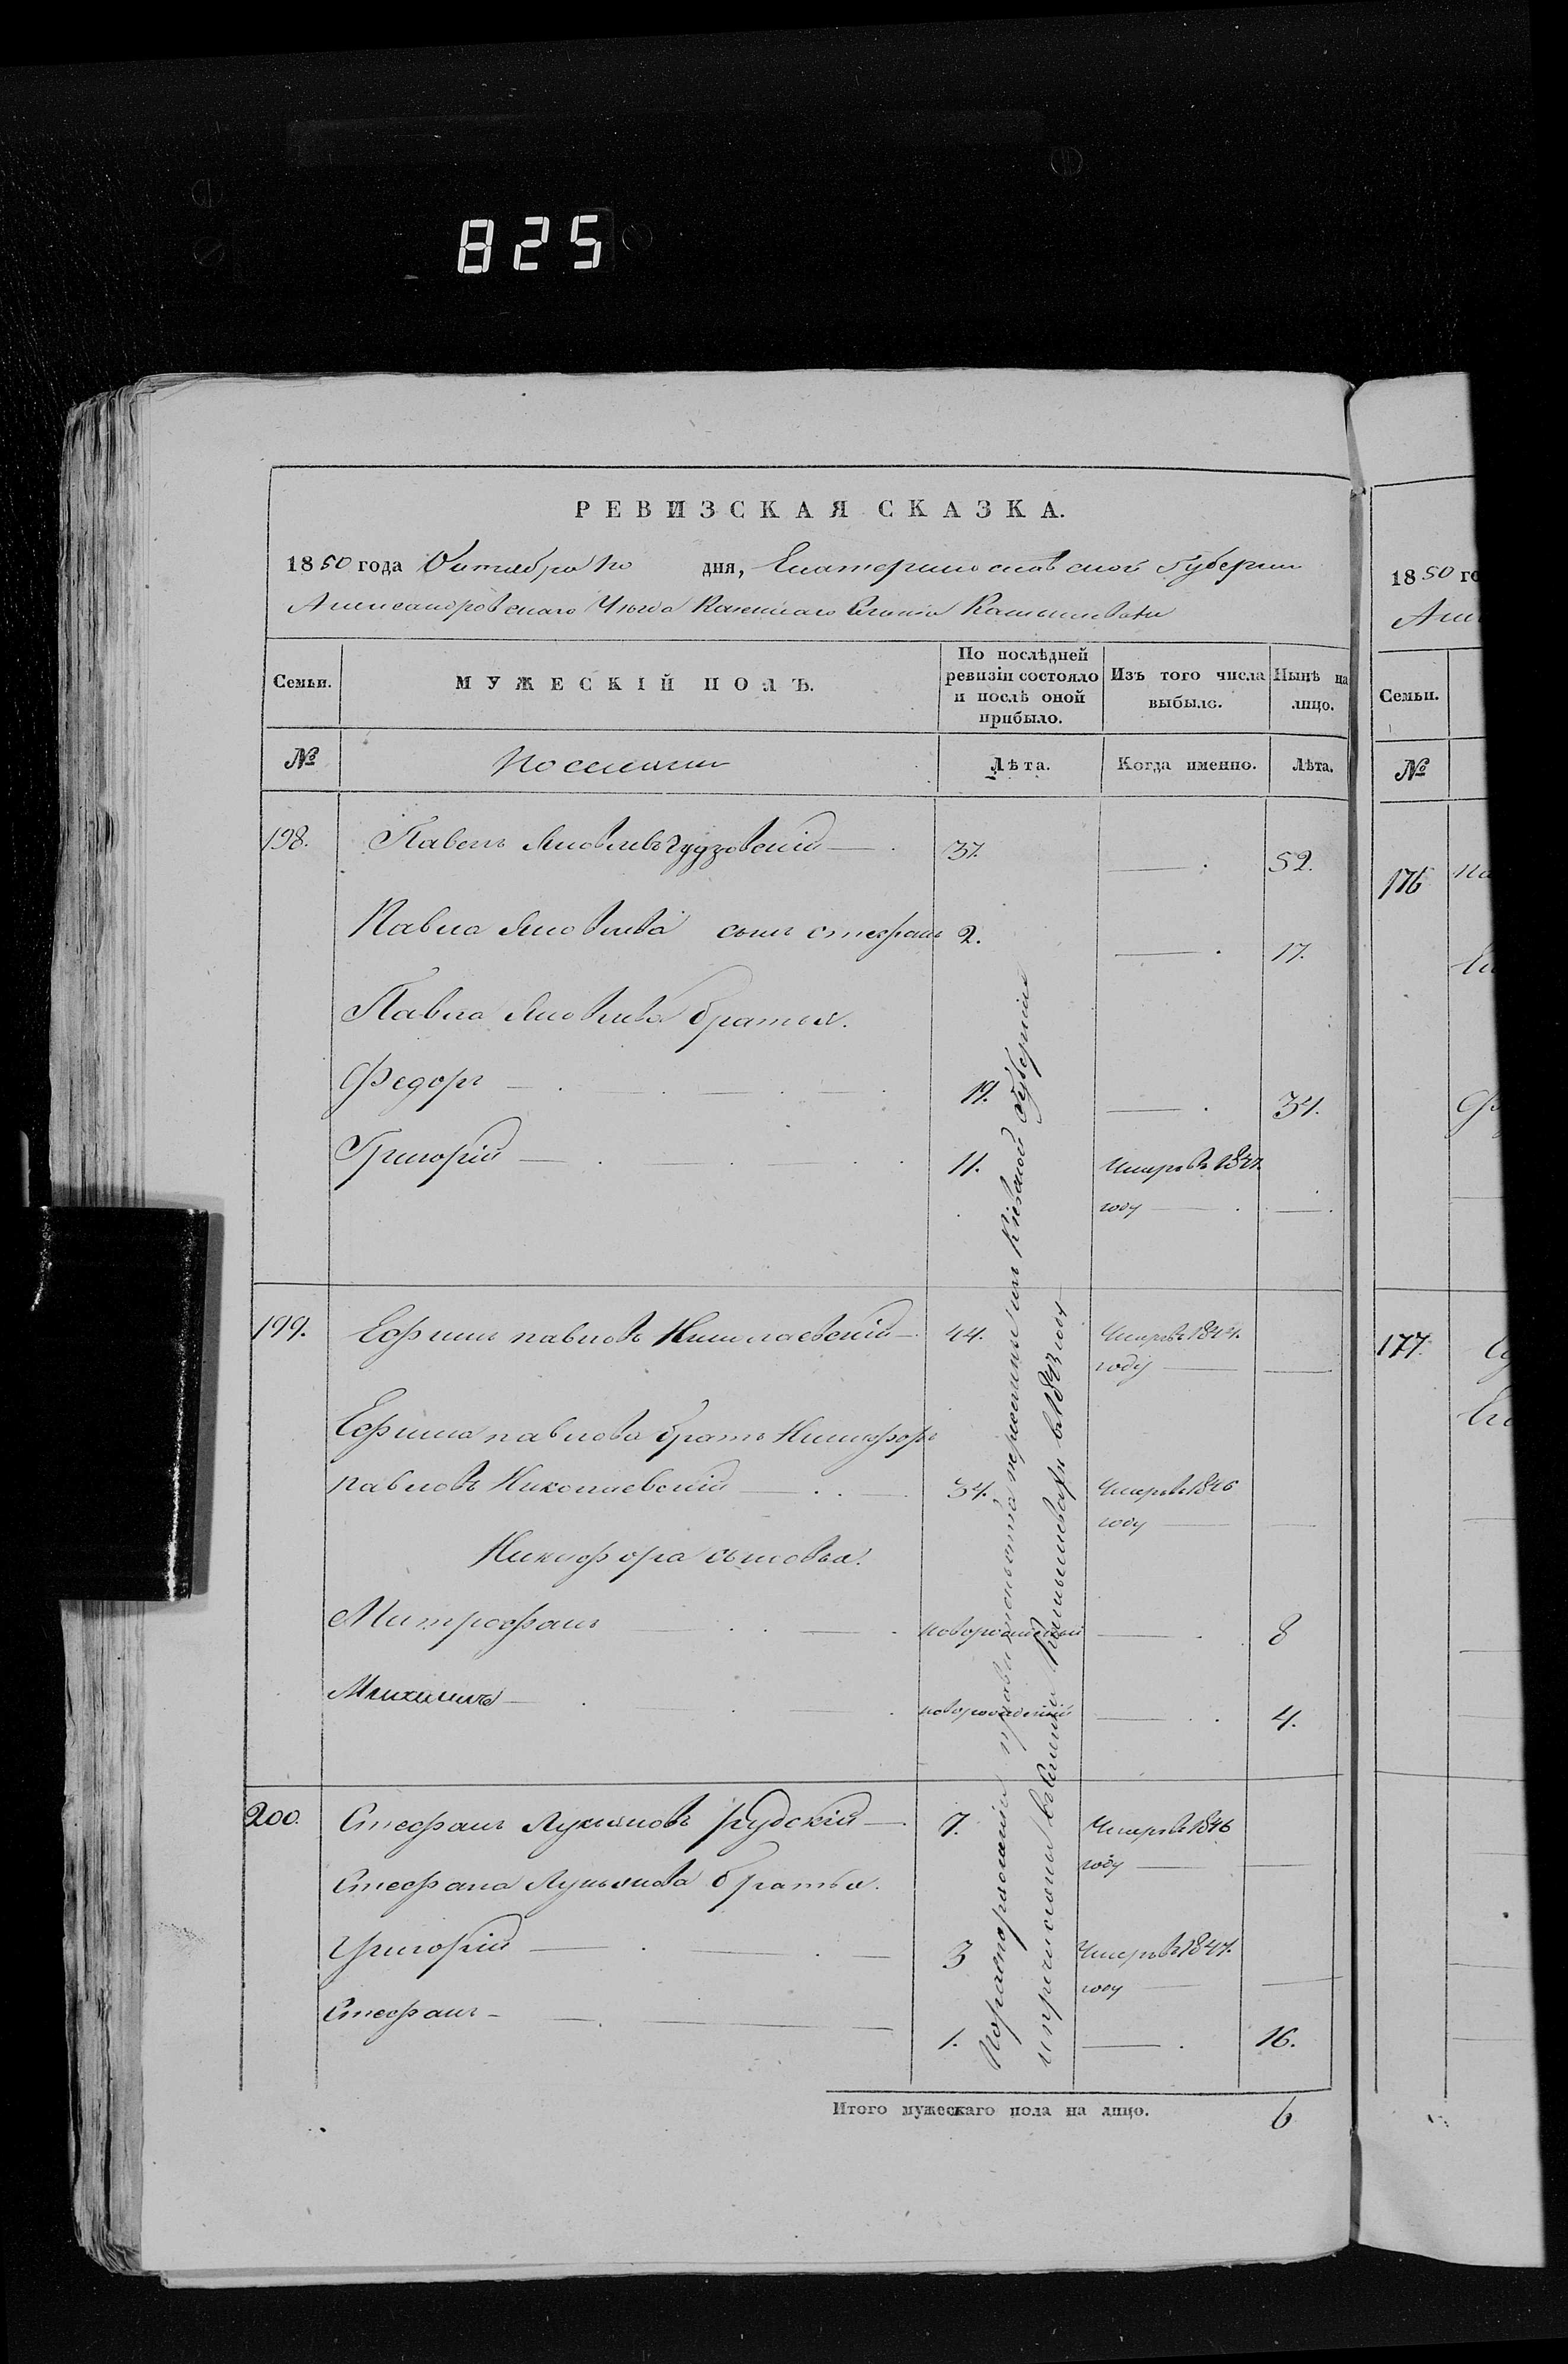 825
РЕВИЗСКАЯ СКАЗКА.
1850 года Октября дня, Екатеринославской Губернии
Александровскаго Уезда Казеннаго Селения Камышевахи
Семьи.
МУЖЕСКІЙ ПОЛЪ.
По послѣдней ревизіи состояло и послѣ оной прибыло.
Изъ того числа выбыло.
Нынѣ на лицо.
№
Лѣта.
Когда именно.
Лѣта.
198. Павелъ Яковлевъ Гудзовскій 37. 52.
Павла Яковлева сынъ Стефанъ 2. 17.
Павла Яковлева братья.
Федоръ 19. 34.
Григорій 11. Умеръ въ 1847.
году
199. Ефимъ Павловъ Николаевскій 44. Умеръ въ 1844.
году
Ефима Павлова братъ Никифоръ
Павловъ Николаевскій 34. Умеръ въ 1846
году
Никифора сыновья.
Митрофанъ новорожденный 8
Михаилъ новорожденный 4.
200. Стефанъ Лукьяновъ Рудскій 7. Умеръ въ 1846
году
Стефана Лукьянова братья.
Григорій 3 Умеръ въ 1847.
году
Стефанъ 1. 16.
По распоряженію правительства переселены изъ Кіевской Губерніи
и причислены въ Селеніи Камышевахи въ 1843 году
Итого мужескаго пола на лицо. 6
1850 го
Семьи.
№
176
177.